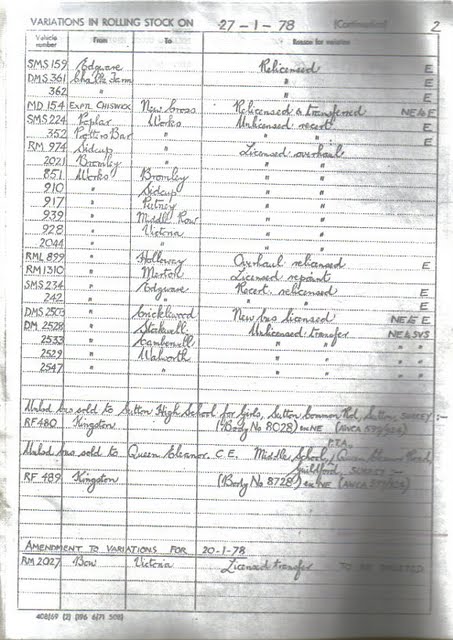 VARIATIONS IN ROLLING STOCK ON 27-1-78 (Continuation) 2
Vehicle number From To Reason for variation
SMS 159 Edgware Relicensed E
DMS 361 Chalk Farm " E
362 " " E
MD 154 Exptl. CHISWICK New Cross Relicensed & transferred NE & E
SMS 224 Poplar Works Unlicensed recert. E
352 Potters Bar " " E
RM 974 Sidcup " Licensed overhaul
2021 Bromley " " "
851 Works Bromley " "
910 " Sidcup " "
917 " Putney " "
939 " Middle Row " "
928 " Victoria " "
2044 " " " "
RML 899 " Holloway Overhaul relicensed E
RM 1310 " Merton Licensed repaint
SMS 234 " Edgware Recert. relicensed E
242 " " " " E
DMS 2503 " Cricklewood New bus licensed NE & E
DM 2528 " Stockwell Unlicensed transfer NE & SYS
2533 " Camberwell " " " "
2529 " Walworth " " " "
2547 " " " " " "
bus sold to Sutton High School for Girls, Sutton Common Rd, Sutton, SURREY :-
RF 480 Kingston (Body No 8028) ex NE
bus sold to Queen Eleanor C.E. Middle School P.T.A., Queen Eleanors Road,
Guildford, SURREY :-
RF 489 Kingston (Body No 8728) ex NE
AMENDMENT TO VARIATIONS FOR 20-1-78
RM 2027 Bow Victoria Licensed transfer TO BE DELETED